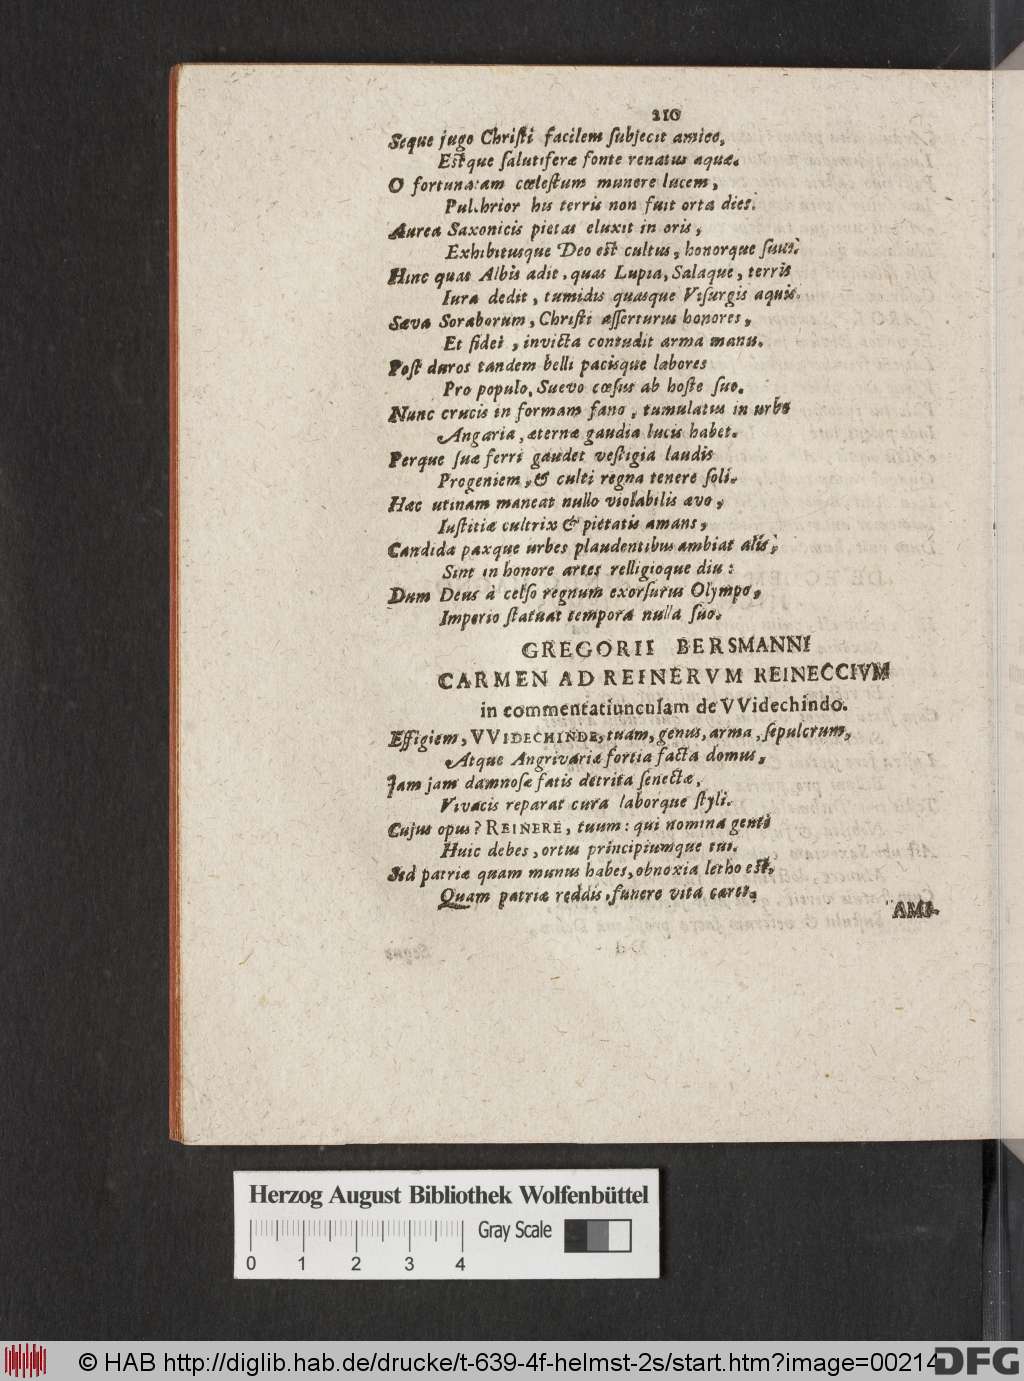 210
Seque jugo Chriſti facilem ſubjecit amico,
Eſtque ſalutiferæ fonte renatus aquæ.
O fortunatam cœleſtum munere lucem,
Pulchrior his terris non fuit orta dies.
Aurea Saxonicis pietas eluxit in oris,
Exhibitusque Deo eſt cultus, honorque ſuus.
Hinc quas Albis adit, quas Lupia, Salaque, terris
Iura dedit, tumidis quasque Viſurgis aquis.
Sæva Soraborum, Chriſti aſſerturus honores,
Et fidei, invicta contudit arma manu.
Poſt duros tandem belli pacisque labores
Pro populo, Suevo cœſus ab hoſte ſuo.
Nunc crucis in formam fano, tumulatus in urbe
Angaria, æternæ gaudia lucis habet.
Perque ſuæ ferri gaudet veſtigia laudis
Progeniem, & culti regna tenere ſoli.
Hæc utinam maneat nullo violabilis ævo,
Iuſtitiæ cultrix & pietatis amans,
Candida paxque urbes plaudentibus ambiat alis,
Sint in honore artes relligioque diu:
Dum Deus à celſo regnum exorſurus Olympo,
Imperio ſtatuat tempora nulla ſuo.
GREGORII BERSMANNI
CARMEN AD REINERVM REINECCIVM
in commentatiunculam de VVidechindo.
Effigiem, VVIDECHINDE, tuam, genus, arma, ſepulcrum,
Atque Angrivariæ fortia facta domus,
Jam jam damnoſæ fatis detrita ſenectæ,
Vivacis reparat cura laborque ſtyli.
Cujus opus? REINERE, tuum: qui nomina genti
Huic debes, ortus principiumque tui.
Sed patriæ quam munus habes, obnoxia letho eſt,
Quam patriæ reddis, funere vita caret.
AMI-
Herzog August Bibliothek Wolfenbüttel
Gray Scale
0 1 2 3 4
© HAB http://diglib.hab.de/drucke/t-639-4f-helmst-2s/start.htm?image=00214
DFG